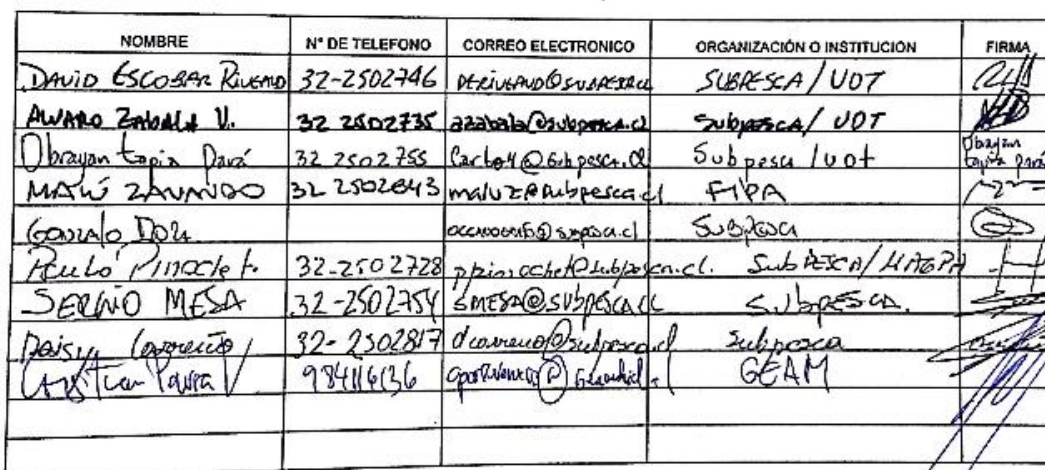 NOMBRE N° DE TELEFONO CORREO ELECTRONICO ORGANIZACIÓN O INSTITUCION FIRMA
DAVID ESCOBAR 32-2502746 SUBPESCA / UOT
ALVARO ZABALA V. 32 2502735 azabala@subpesca.cl subpesca / UOT
Obrayan tapia Pará 32 2502755 Subpesca / uot Obrayan tapia Pará
MALÚ ZAVANDO 32 2502843 maluz@subpesca.cl FIPA
GONZALO Subpesca
Paulo Pinochet. 32-2502728 ppinochet@subpesca.cl. SUBPESCA /
SERGIO MESA 32-2502754 SMESA@SUBPESCA.CL SUBPESCA.
Daisy Carreño 32-2502817 dcarreno@subpesca.cl Subpesca
Cristian 984116136 GEAM